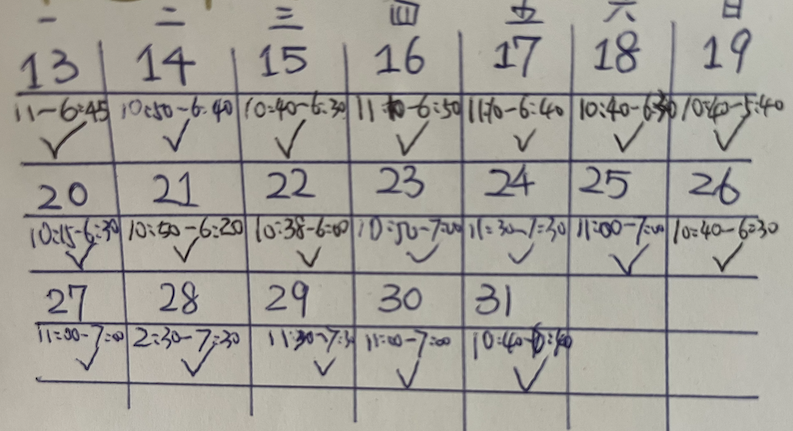 一 二 三 四 五 六 日
13 14 15 16 17 18 19
11-6:45 10:50-6:40 10:40-6:30 11:10-6:50 11:10-6:40 10:40-6:30 10:40-5:40
20 21 22 23 24 25 26
10:15-6:30 10:50-6:20 10:38-6:00 10:50-7:00 11:30-7:30 11:00-7:00 10:40-6:30
27 28 29 30 31
11:00-7:00 2:30-7:30 11:30-7:3 11:00-7:00 10:40-6:40